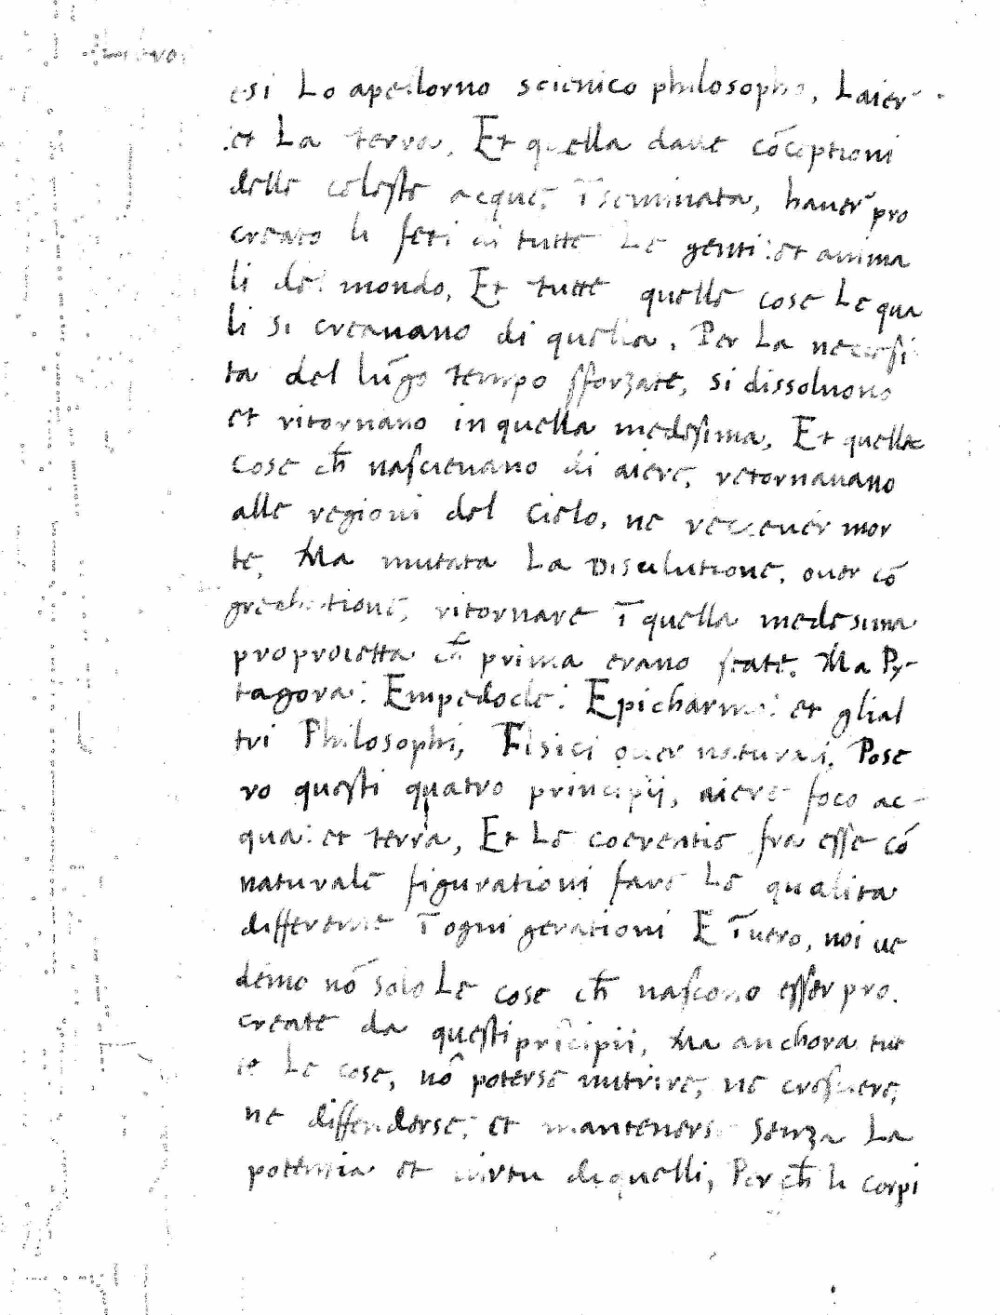 esi Lo apellorno scienico philosopho, Laier
et La terra, Et quella dalle cōceptioni
delle celeste acque, ī seminata, hauer pro
creato li feti di tutte Le genti: et anima
li del mondo, Et tutte quelle cose Le qua
li si creauano di quella, Per La necessi
ta del lūgo tempo sforzate, si dissoluono
et ritornano in quella medesima, Et quelle
cose ch̄ nascieuano di aiere, retornauano
alle regioni del Cielo, ne receuer mor
te, Ma mutata La Disulutione, ouer cō
ritornare ī quella medesima
proproietta ch̄ prima erano state. Ma Py-
tagora: Empedocle: Epicharmo: et glial
tri Philosophi, Fisici ouer naturali, Pose
ro questi quatro principij, aiere foco ac-
qua: et terra, Et Le coerentie fra esse cō
naturale figurationi fare Le qualita
differentie ī ogni gerationi E ī uero, noi ue
demo nō solo Le cose ch̄ nascono esser pro.
create da questi prīcipij, Ma anchora tut
te Le cose, nō poterse nutrire, ne crescere,
ne diffenderse, et mantenerse senza La
potentia et uirtu de quelli, Per ch̄ li corpi